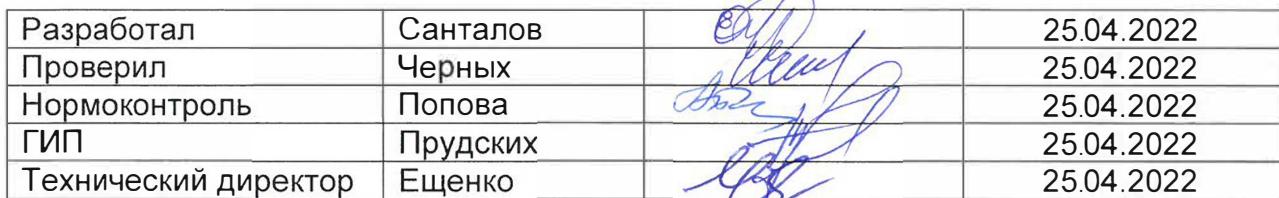 Разработал Санталов 25.04.2022
Проверил Черных 25.04.2022
Нормоконтроль Попова 25.04.2022
ГИП Прудских 25.04.2022
Технический директор Ещенко 25.04.2022